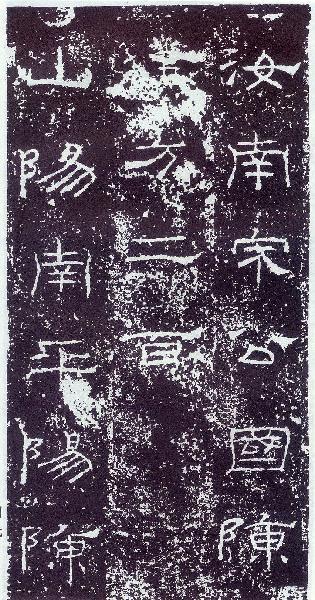 汝南宋公國陳
方二百
山陽南平陽陳